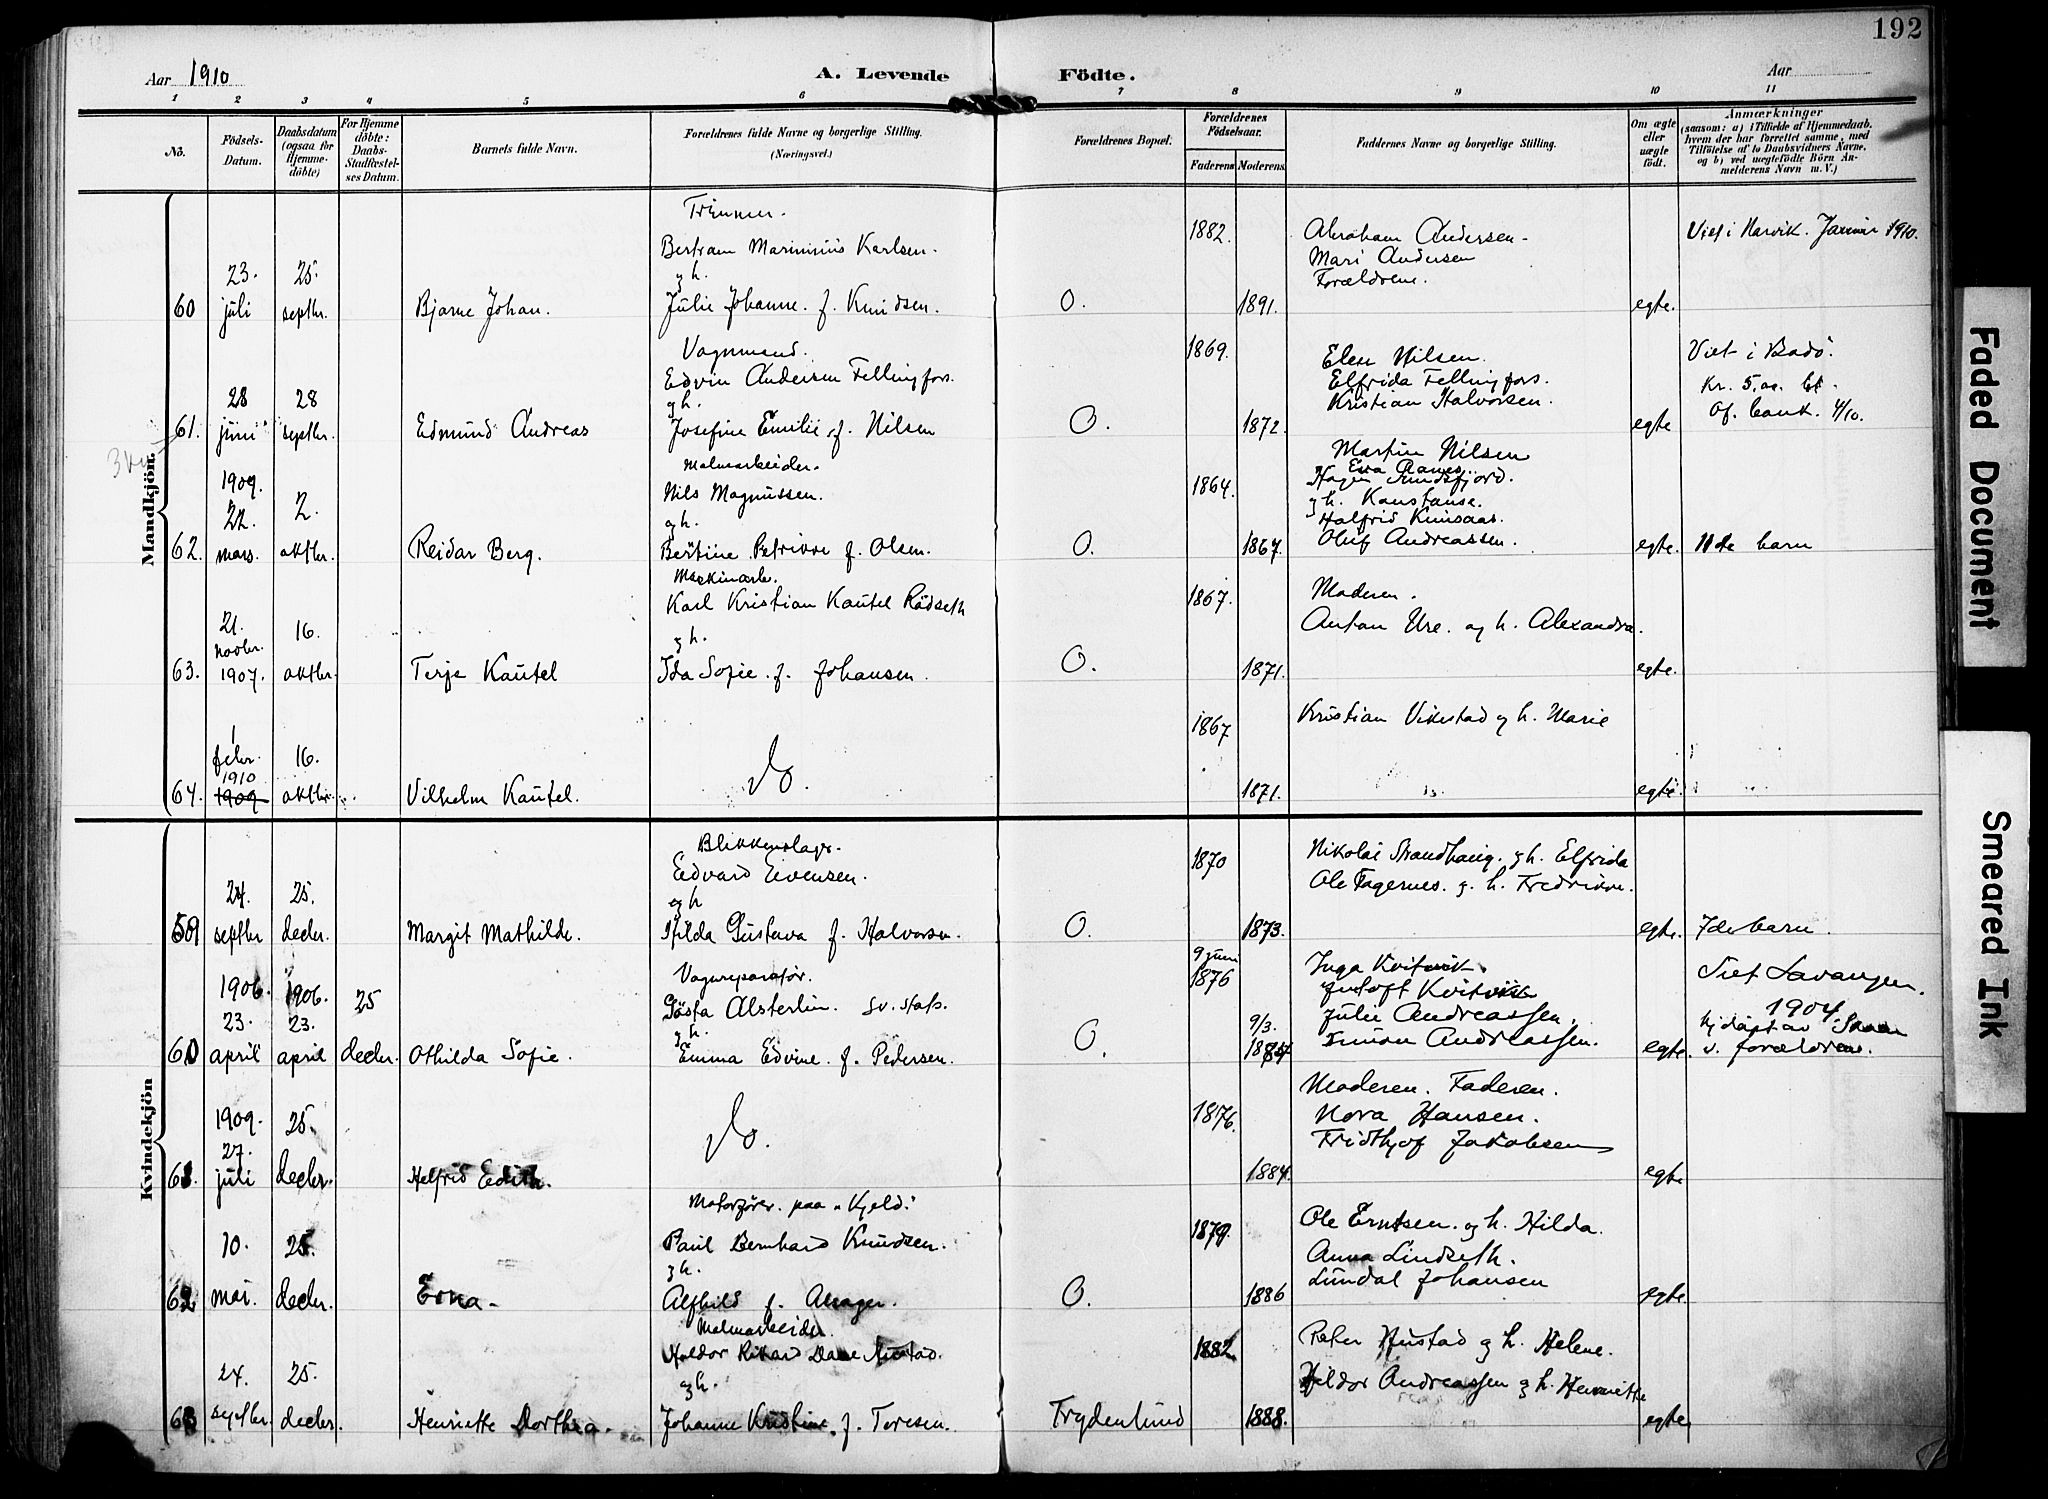 192
Aar 1910
A. Levende Födte.
Aar
1 2 3 4 5 6 7 8 9 10 11
No.
Födsels-Datum.
Daabsdatum (ogsaa for Hjemmedöbte)
For Hjemmedöbte: Daabs-Stadfæstelses Datum.
Barnets fulde Navn.
Forældrenes fulde Navne og borgerlige Stilling.
(Næringsvei.)
Forældrenes Bopæl.
Forældrenes Födselsaar.
Faderens Moderens
Faddernes Navne og borgerlige Stilling.
Om ægte eller uægte födt.
Anmærkninger
(saasom: a) i Tilfælde af Hjemmedaab, hvem der har forrettet samme, med Tilföielse af to Daabsvidners Navne, og b) ved uægtefödte Börn Anmelderens Navn m. V.)
Mandkjön.
Trimmer.
1882. Abraham Andersen- Viet i Narvik. Januar 1910.
Bertram Marinius Karlsen.
Mari Andersen
23. 25. gh. Forældrene.
60 juli septbr. Bjarne Johan. Julie Johanne. f. Knudsen. O. 1891. egte.
Vognmand. 1869. Elen Nilsen. Viet i Bodö.
Edvin Andersen Fellingfors. Elfrida Fellingfors. Kr. 5.00 bt.
28 28 gh. Kristian Halvorsen. Of. bank. 4/10.
61. juni septbr. Edmund Andreas Josefine Emilie f. Nilsen O. 1872. egte
Malmarbeider. Martin Nilsen
1909. Nils Magnussen. 1864. Hagen Sundsfjord.
22. 2. gh. gh. Konstanse.
Halfrid
62. mars. oktbr. Reidar Berg. Bertine Petrikke f. Olsen. O. 1867. Oluf Andreassen. egte. 11de barn
Maskinarb.
Karl Kristian Kautel Rödseth 1867. Moderen.
21. 16. gh. Anton Ure. og h. Alexandra.
novbr.
63. 1907. oktbr. Terje Kautel Ida Sofie. f. Johansen. O. 1871. egte.
1 1867 Kristian Vikestad og h. Marie
febr. 16. do.
1910
64. 1909 oktbr. Vilhelm Kautel. 1871. egte.
Kvindekjön
Blikkenslager. 1870 Nikolai Strandhaug. gh. Elfrida
Edvard Evensen. Ole Fagernes. g. h. Fredrikke.
24. 25. gh
59 septbr decbr. Margit Mathilde. Hilda Gustava f. Halvorsen. O. 1873. egte. 7de barn.
Vognreparatør. 9 juni 1876 Inga Kvitvik
1906. 1906. 25 Gösta Alsterlin. Sv. stats. Kvitvik Viet Lavangen.
23. 23. gh. 9/3. Julie Andreassen. 1904
60 april april decbr. Othilda Sofie. Emma Edvine. f. Pedersen. O. Simon Andreassen. egte. v. forældrene.
1909. 25. do. 1876. Moderen. Faderen.
27. Nora Hansen.
Fridthjof Jakobsen
61. juli decbr. Helfrid Edith. 1884. egte
Motorfører. paa "Kjeld". 1879. Ole Erntsen. og h. Hilda.
10. 25. Paul Bernhard Knudsen. Anna Lindseth.
gh. Lundal Johansen
62 mai. decbr. Erna- Alfhild f. O. 1886 egte.
Malmarbeider. 1882 Peter Hustad g h. Helene.
Haldor Rikard Hustad.
24. 25. gh. Hildor Andreassen g h. Henriette
63 septbr. decbr. Henriette Dorthea. Johanne Kristine. f. Toresen. Frydenlund 1888. egte
Faded Document
Smeared Ink